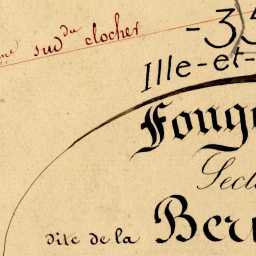 -35
sud du clocher
Ille-et-
Foug
Sect
dite de la Ber